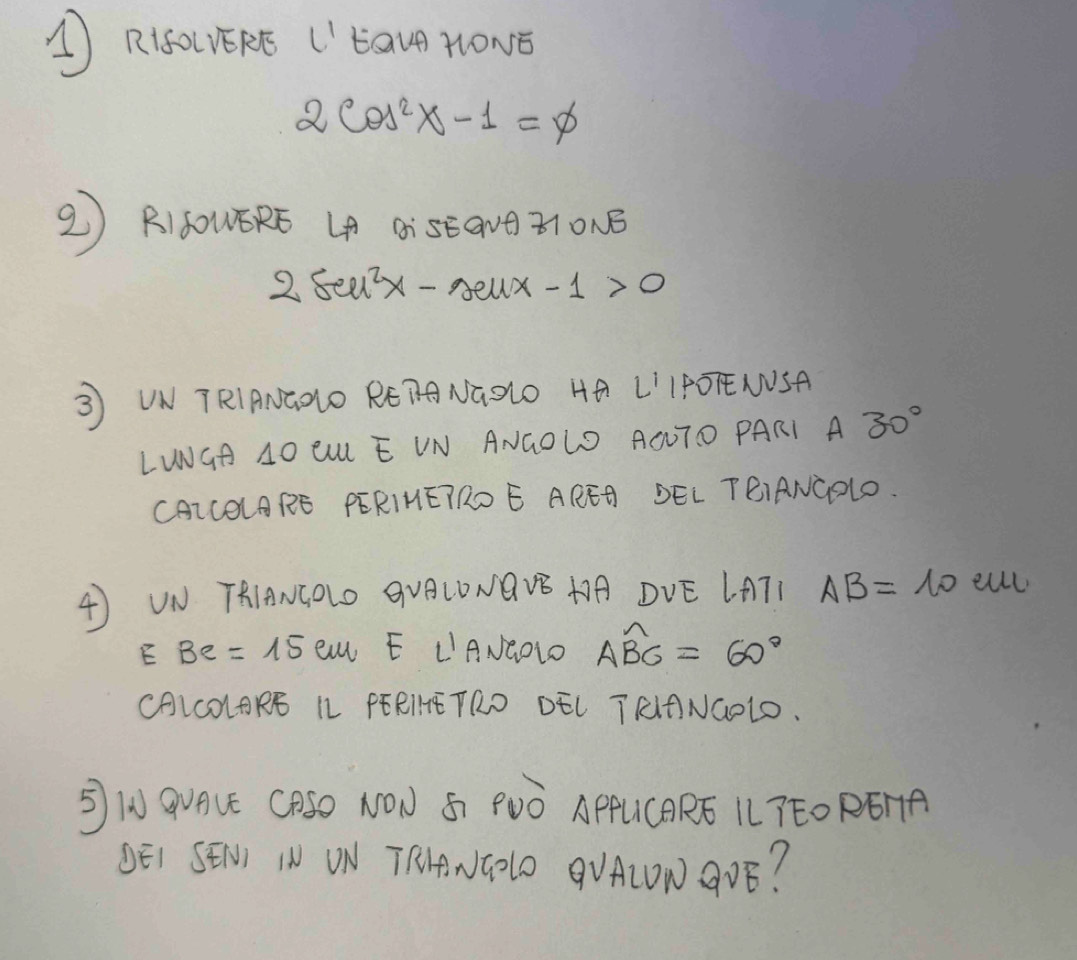 1) RISOLVERE L'EQUAZIONE
2 Cos²x - 1 = ∅
2) RISOLVERE LA DISEQUAZIONE
2 Sen²x - senx - 1 > 0
3) UN TRIANGOLO RETTANGOLO HA L'IPOTENUSA
LUNGA 10 cm E UN ANGOLO ACUTO PARI A 30°
CALCOLARE PERIMETRO E AREA DEL TRIANGOLO.
4) UN TRIANGOLO QUALUNQUE HA DUE LATI AB = 10 cm
E BC = 15 cm E L'ANGOLO AB̂C = 60°
CALCOLARE IL PERIMETRO DEL TRIANGOLO.
5) IN QUALE CASO NON SI PUÒ APPLICARE IL TEOREMA
DEI SENI IN UN TRIANGOLO QUALUNQUE?